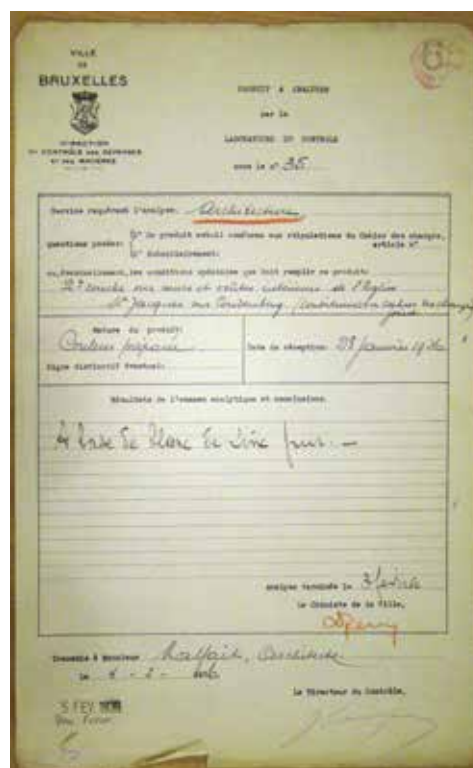 VILLE
DE
BRUXELLES
DIRECTION
DU CONTRÔLE DES DÉPENSES
ET DES MATIÈRES
PRODUIT A ANALYSER
par le
LABORATOIRE DU CONTROLE
sous le n° 35
Service requérant l'analyse: Architecture
questions posées: 1° Ce produit est-il conforme aux stipulations du Cahier des charges,
article n°
2° Subsidiairement:
ou, éventuellement, les conditions spéciales que doit remplir ce produit:
2e couche sur murs et voûtes intérieurs de l'Eglise
St Jacques sur Coudenberg
Nature du produit:
Couleur préparée
Date de réception: 28 janvier
Signe distinctif éventuel:
Résultats de l'examen analytique et conclusions.
A base de blanc de zinc pur. —
Analyse terminée le 3 février
Le Chimiste de la Ville,
Transmis à Monsieur Malfait, Architecte
le 4 - 2 -
Le Directeur du Contrôle,
5 FEV. 1936